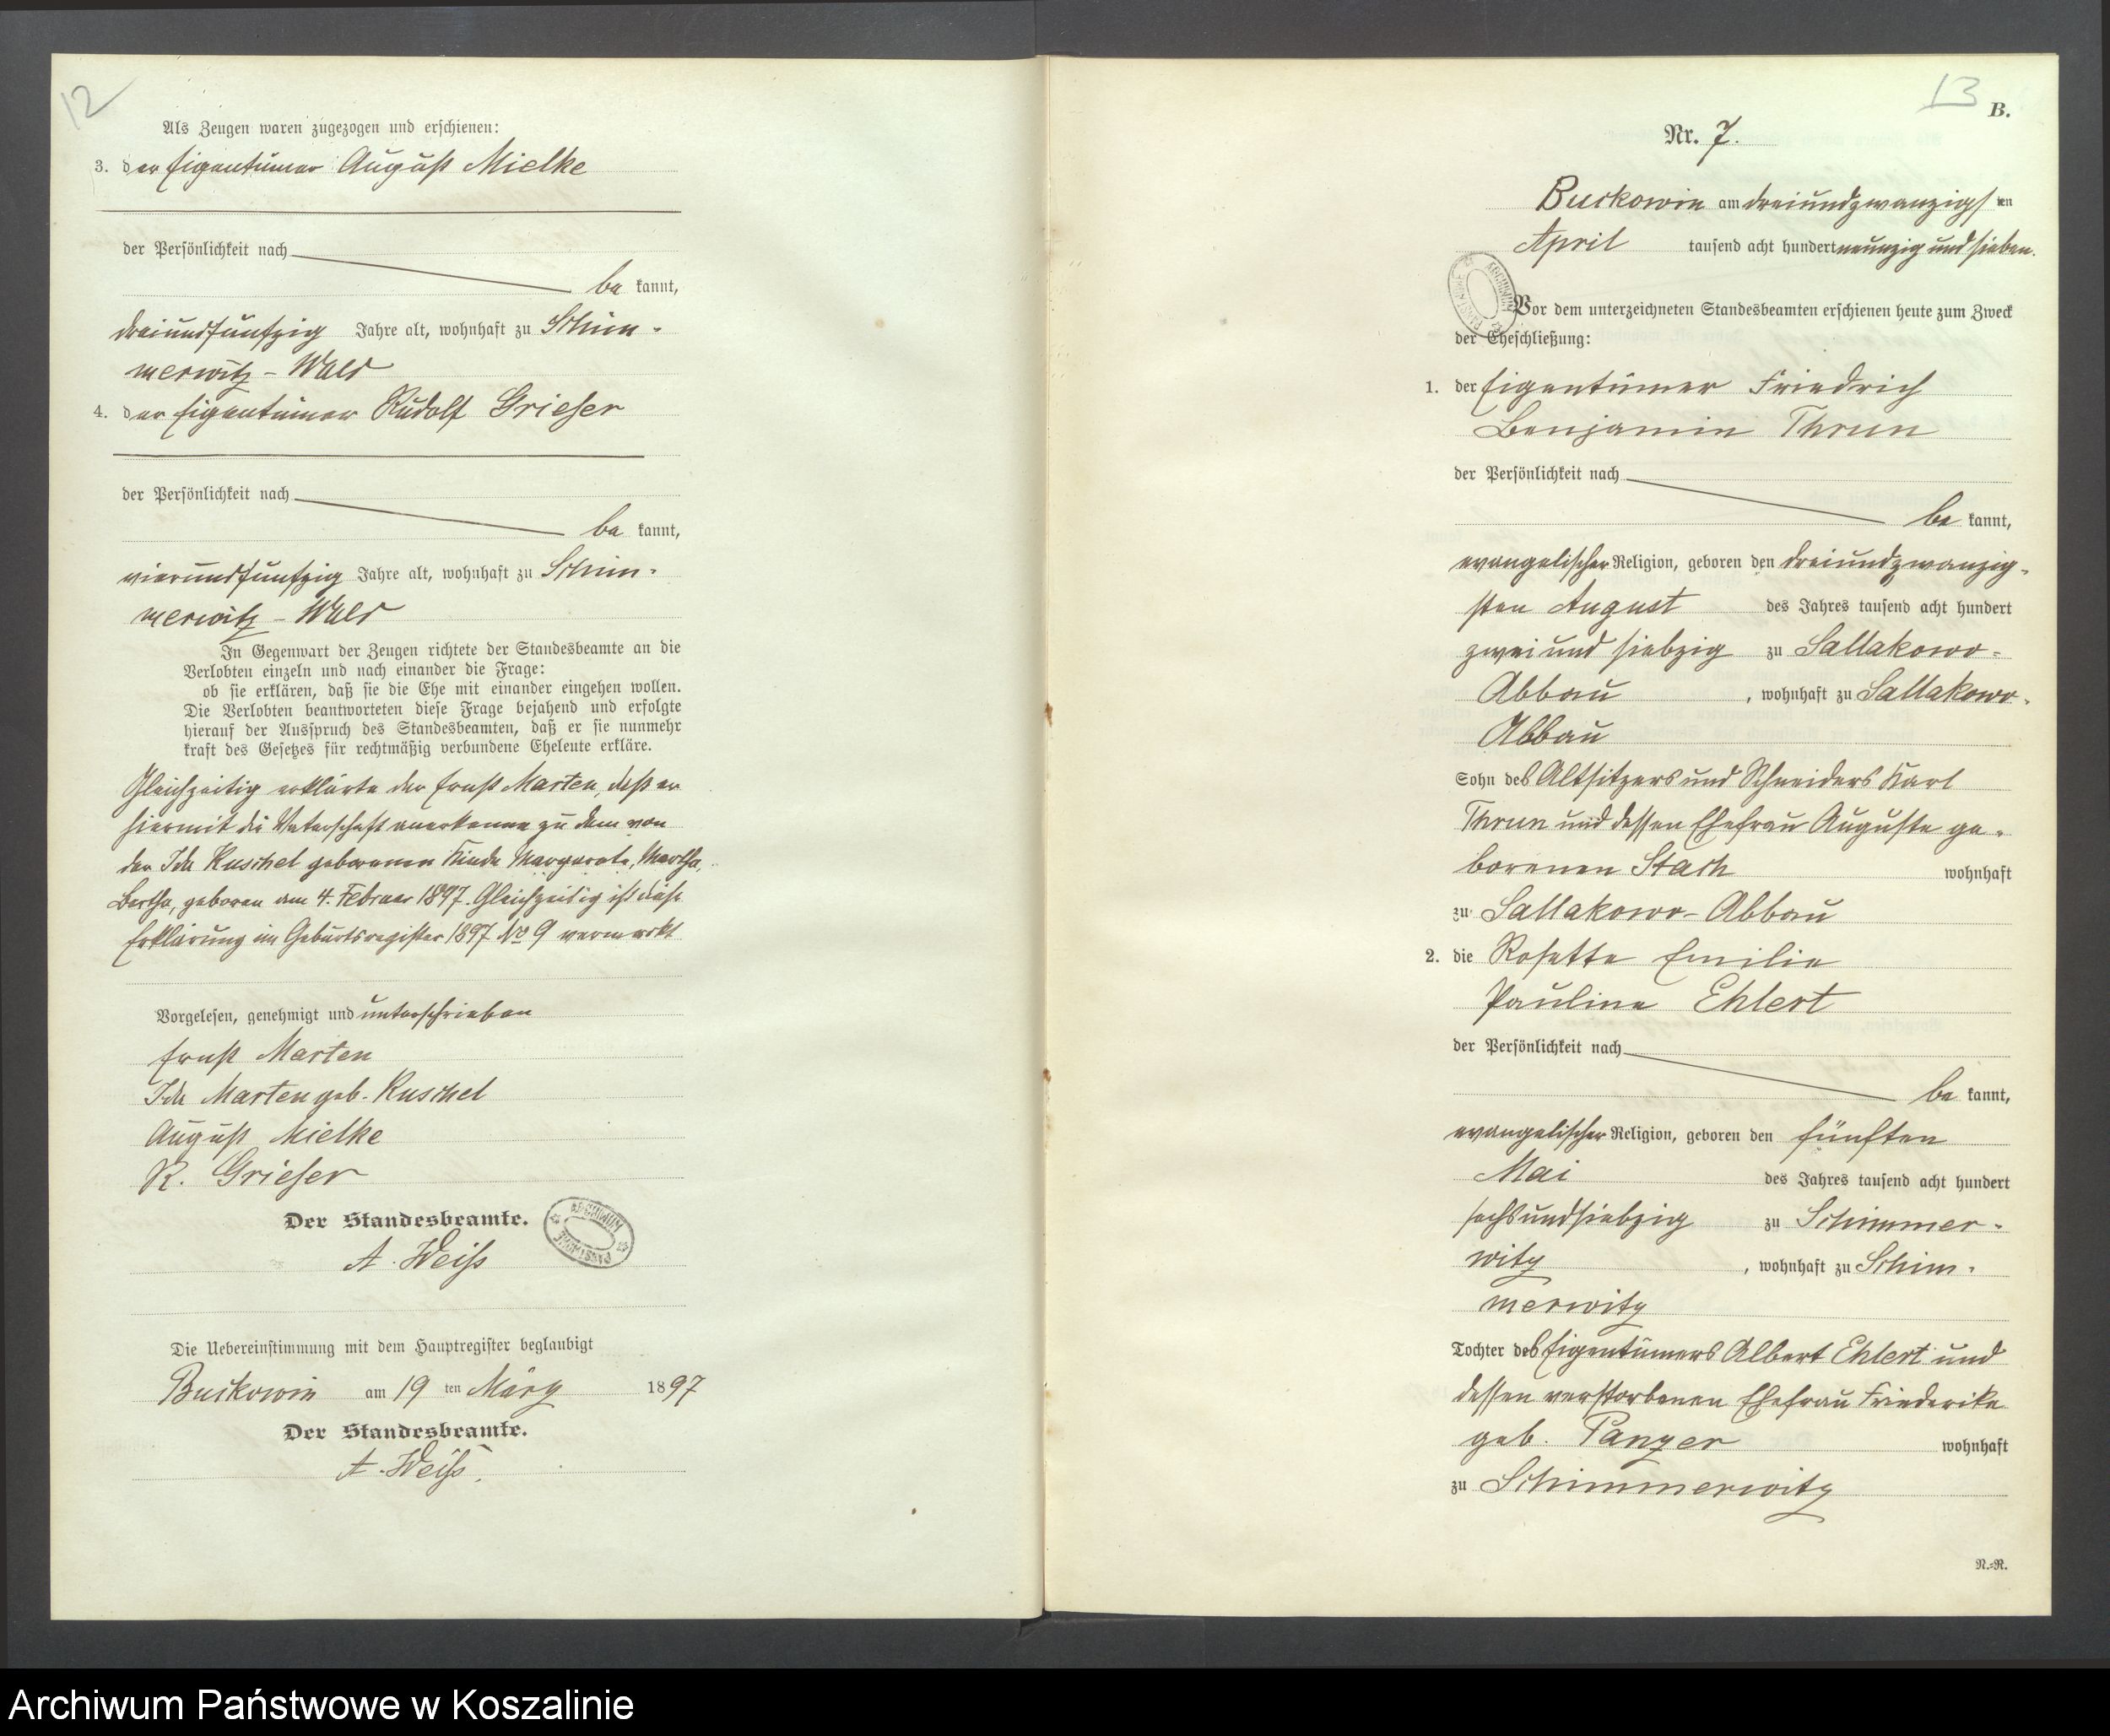 12
Als Zeugen waren zugezogen und erschienen:
3. der Eigentümer August Mielke
der Persönlichkeit nach
be kannt,
dreiundfünfzig Jahre alt, wohnhaft zu Schim-
merwitz - Wald
4. der Eigentümer Rudolf Grieser
der Persönlichkeit nach
be kannt,
vierundfünfzig Jahre alt, wohnhaft zu Schim-
merwitz - Wald
In Gegenwart der Zeugen richtete der Standesbeamte an die
Verlobten einzeln und nach einander die Frage:
ob sie erklären, daß sie die Ehe mit einander eingehen wollen.
Die Verlobten beantworteten diese Frage bejahend und erfolgte
hierauf der Ausspruch des Standesbeamten, daß er sie nunmehr
kraft des Gesetzes für rechtmäßig verbundene Eheleute erkläre.
Gleichzeitig erklärte der Ernst Marten, daß er
hiermit die Vaterschaft anerkenne zu dem von
der Ida Kuschel geborenen Kinde Margarete, Martha,
Bertha, geboren am 4. Februar 1897. Gleichzeitig ist diese
Erklärung im Geburtsregister 1897 No 9 vermerkt
Vorgelesen, genehmigt und unterschrieben
Ernst Marten
Ida Marten geb. Kuschel
August Mielke
R. Grieser
Der Standesbeamte.
A. Weiß
ARCHIWUM PAŃSTWOWE
Die Uebereinstimmung mit dem Hauptregister beglaubigt
Buckowin am 19 ten März 1897
Der Standesbeamte.
A. Weiß.
13
B.
Nr. 7.
Buckowin am dreiundzwanzigsten
April tausend acht hundert neunzig und sieben.
ARCHIWUM PAŃSTWOWE
Vor dem unterzeichneten Standesbeamten erschienen heute zum Zweck
der Eheschließung:
1. der Eigentümer Friedrich
Benjamin Thrun
der Persönlichkeit nach
be kannt,
evangelischer Religion, geboren den dreiundzwanzig-
sten August des Jahres tausend acht hundert
zwei und siebzig zu Sallakowo-
Abbau, wohnhaft zu Sallakowo-
Abbau
Sohn des Altsitzers und Schneiders Karl
Thrun und dessen Ehefrau Auguste ge-
borenen Stach wohnhaft
zu Sallakowo-Abbau
2. die Rosette Emilie
Pauline Ehlert
der Persönlichkeit nach
be kannt,
evangelischer Religion, geboren den fünften
Mai des Jahres tausend acht hundert
sechsundsiebzig zu Schimmer-
witz, wohnhaft zu Schim-
merwitz
Tochter des Eigentümers Albert Ehlert und
dessen verstorbenen Ehefrau Friederike
geb. Panzer wohnhaft
zu Schimmerwitz
N.=R.
Archiwum Państwowe w Koszalinie